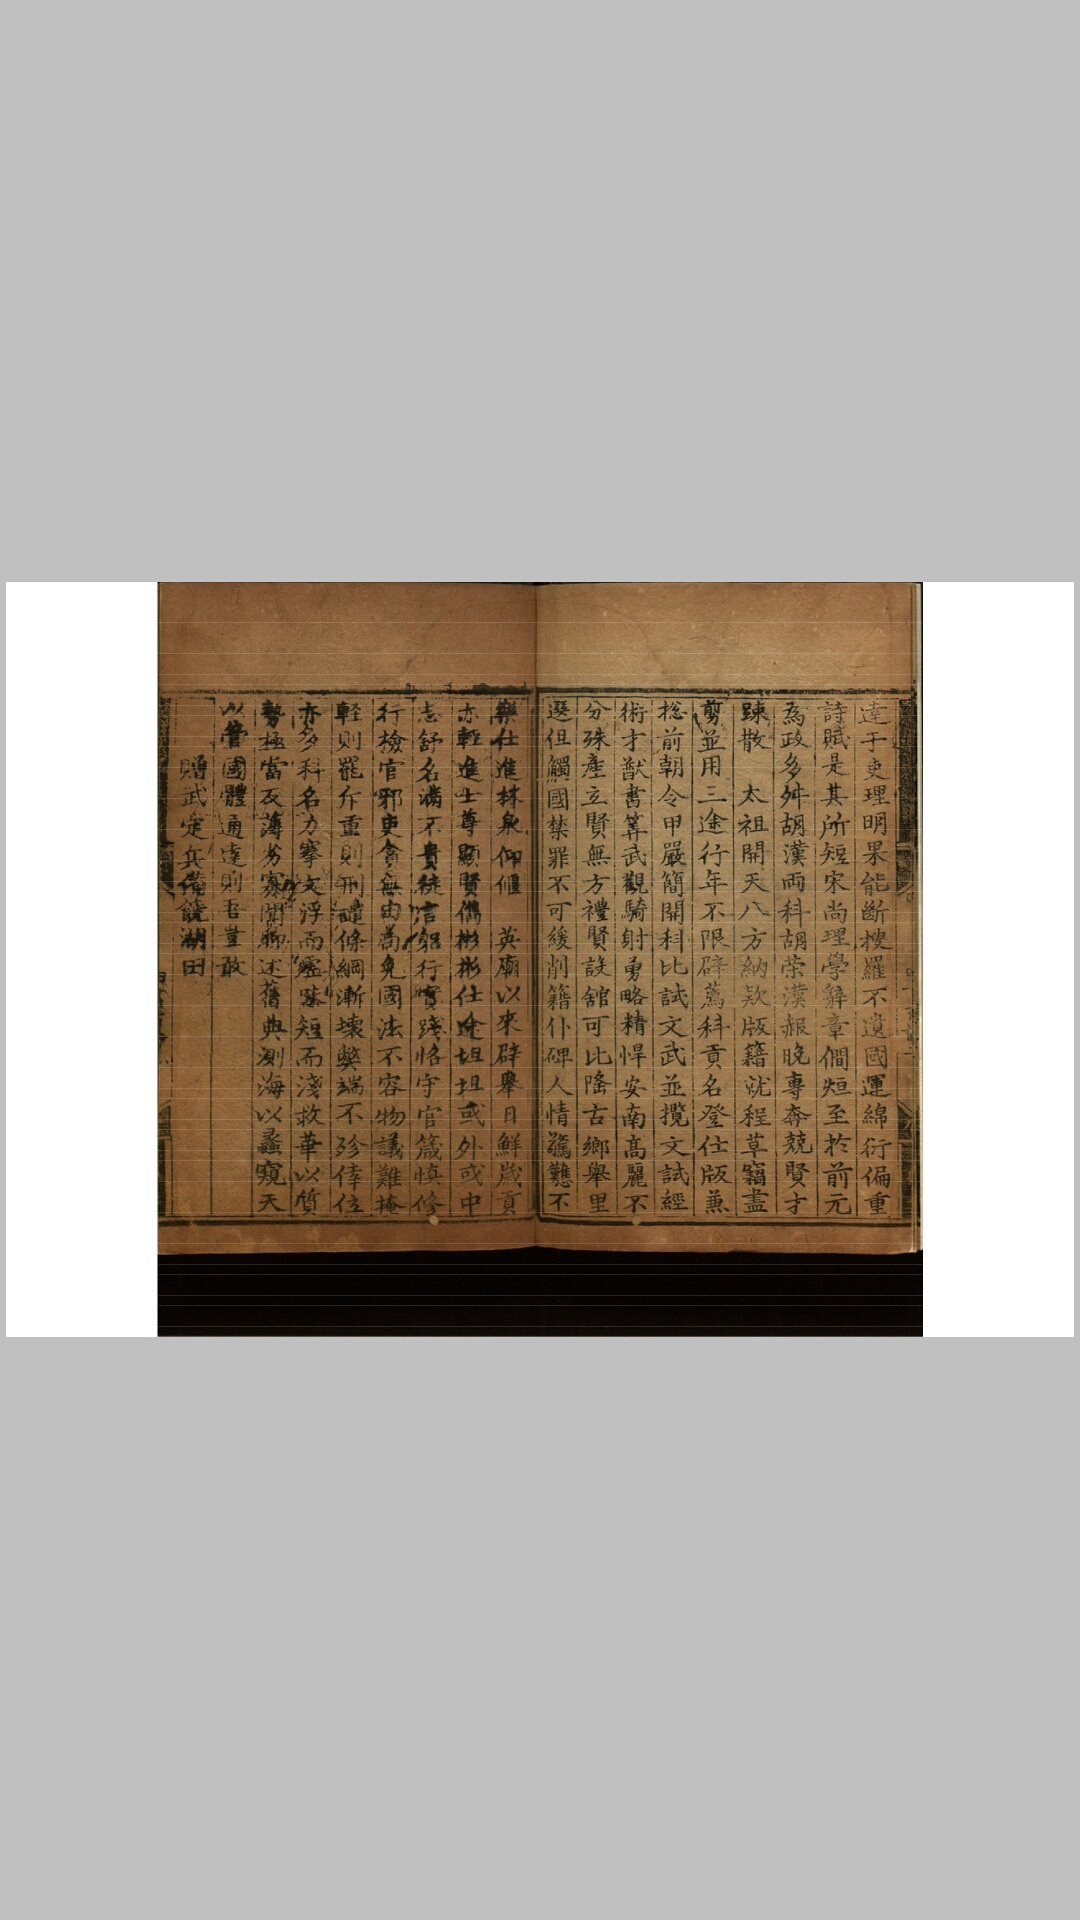 達于吏理明果能斷搜羅不遺國運綿衍偏重
詩賦是其所短宋尚理學辭章僩烜至於前元
為政多舛胡漢両科胡荣漢赧晚專奔競賢才
踈散 太祖開天八方納欵版籍就程草竊盡
剪並用三途行年不限辟薦科貢名登仕版兼
捴前朝令甲嚴簡開科比試文武並攬文試經
術才猷書筭武觀騎射勇略精悍安南髙麗不
分殊產立賢無方禮賢設舘可比隆古鄉舉里
選但觸國禁罪不可緩削籍仆碑人情驚難不
樂仕進林泉仰偃 英廟以來辟舉日鮮歲貢
亦輕進士尊顯賢儁彬彬仕途坦坦或外或中
志舒名滿不貴徒言躬行實踐恪守官箴慎修
行檢官邪吏貪無由髙免國法不容物議難掩
輕則罷斥重則刑譴條綱漸壞獘端不殄倖位
亦多科名力搴文浮而虛策短而淺救華以質
勢極當反薄劣寡聞聊述舊典測海以蠡窺天
以管國體通達則吾豈敢
贈武定兵備饒湖田